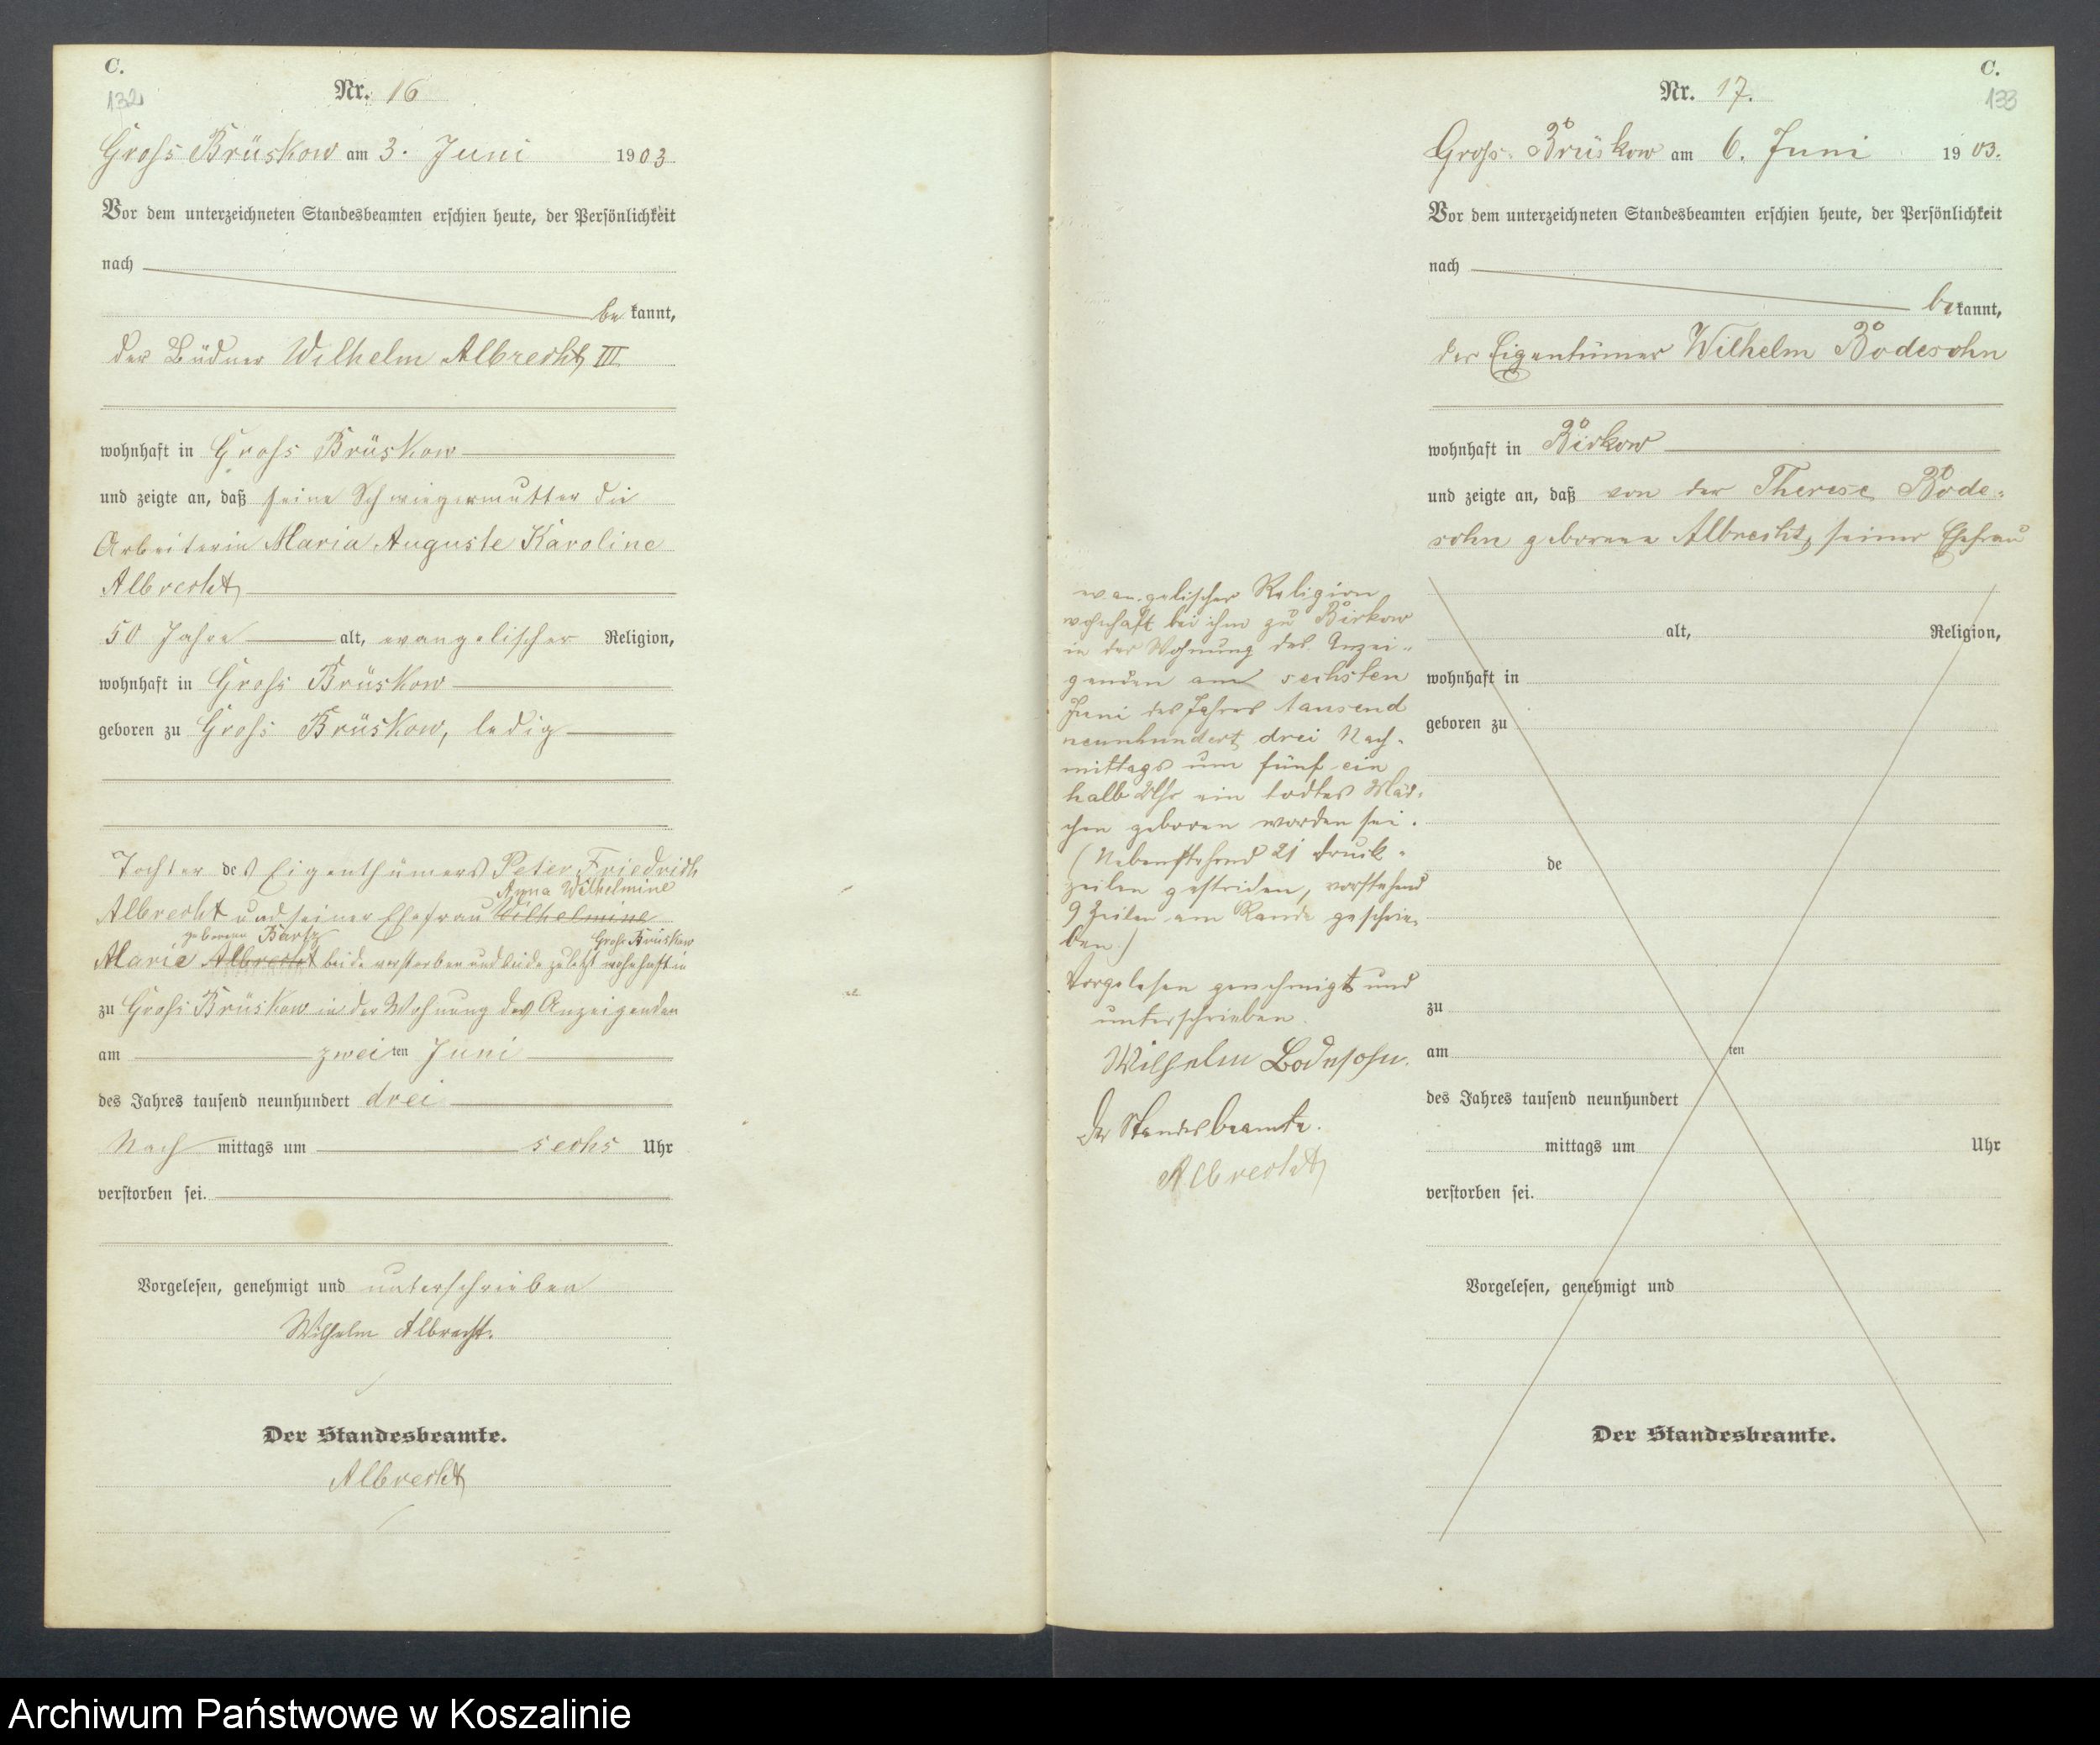 C.
132
Nr. 16
Gross Brüskow am 3. Juni 1903
Vor dem unterzeichneten Standesbeamten erschien heute, der Persönlichkeit
nach
be kannt,
der Büdner Wilhelm Albrecht III
wohnhaft in Gross Brüskow
und zeigte an, daß seine Schwiegermutter die
Arbeiterin Maria Auguste Karoline
Albrecht
50 Jahre alt, evangelischer Religion,
wohnhaft in Gross Brüskow
geboren zu Gross Brüskow, ledig
Tochter des Eigenthümers Peter Friedrich
Anna Wilhelmine
Albrecht und seiner Ehefrau Wilhelmine
geborene Bartz Gross Brüskow
Marie Albrecht beide verstorben und beide zuletzt wohnhaft in
zu Gross Brüskow in der Wohnung des Anzeigenden
am zweiten Juni
des Jahres tausend neunhundert drei
Nach mittags um sechs Uhr
verstorben sei.
Vorgelesen, genehmigt und unterschrieben
Wilhelm Albrecht.
Der Standesbeamte.
Albrecht
C.
133
Nr. 17.
Gross Brüskow am 6. Juni 1903.
Vor dem unterzeichneten Standesbeamten erschien heute, der Persönlichkeit
nach
be kannt,
der Eigentümer Wilhelm Bodesohn
wohnhaft in Birkow
und zeigte an, daß von der Therese Bode-
sohn geborene Albrecht, seiner Ehefrau
evangelischer Religion
wohnhaft bei ihm zu Birkow
in der Wohnung des Anzei-
genden am sechsten
Juni des Jahres tausend
neunhundert drei Nach-
mittags um fünf ein
halb Uhr ein todtes Mäd-
chen geboren worden sei.
(Nebenstehend 21 Druck-
zeilen gestrichen, vorstehend
9 Zeilen am Rande geschrie-
ben.)
Vorgelesen genehmigt und
unterschrieben.
Wilhelm Bodesohn.
Der Standesbeamte.
Albrecht
alt, Religion,
wohnhaft in
geboren zu
de
zu
am ten
des Jahres tausend neunhundert
mittags um Uhr
verstorben sei.
Vorgelesen, genehmigt und
Der Standesbeamte.
Archiwum Państwowe w Koszalinie